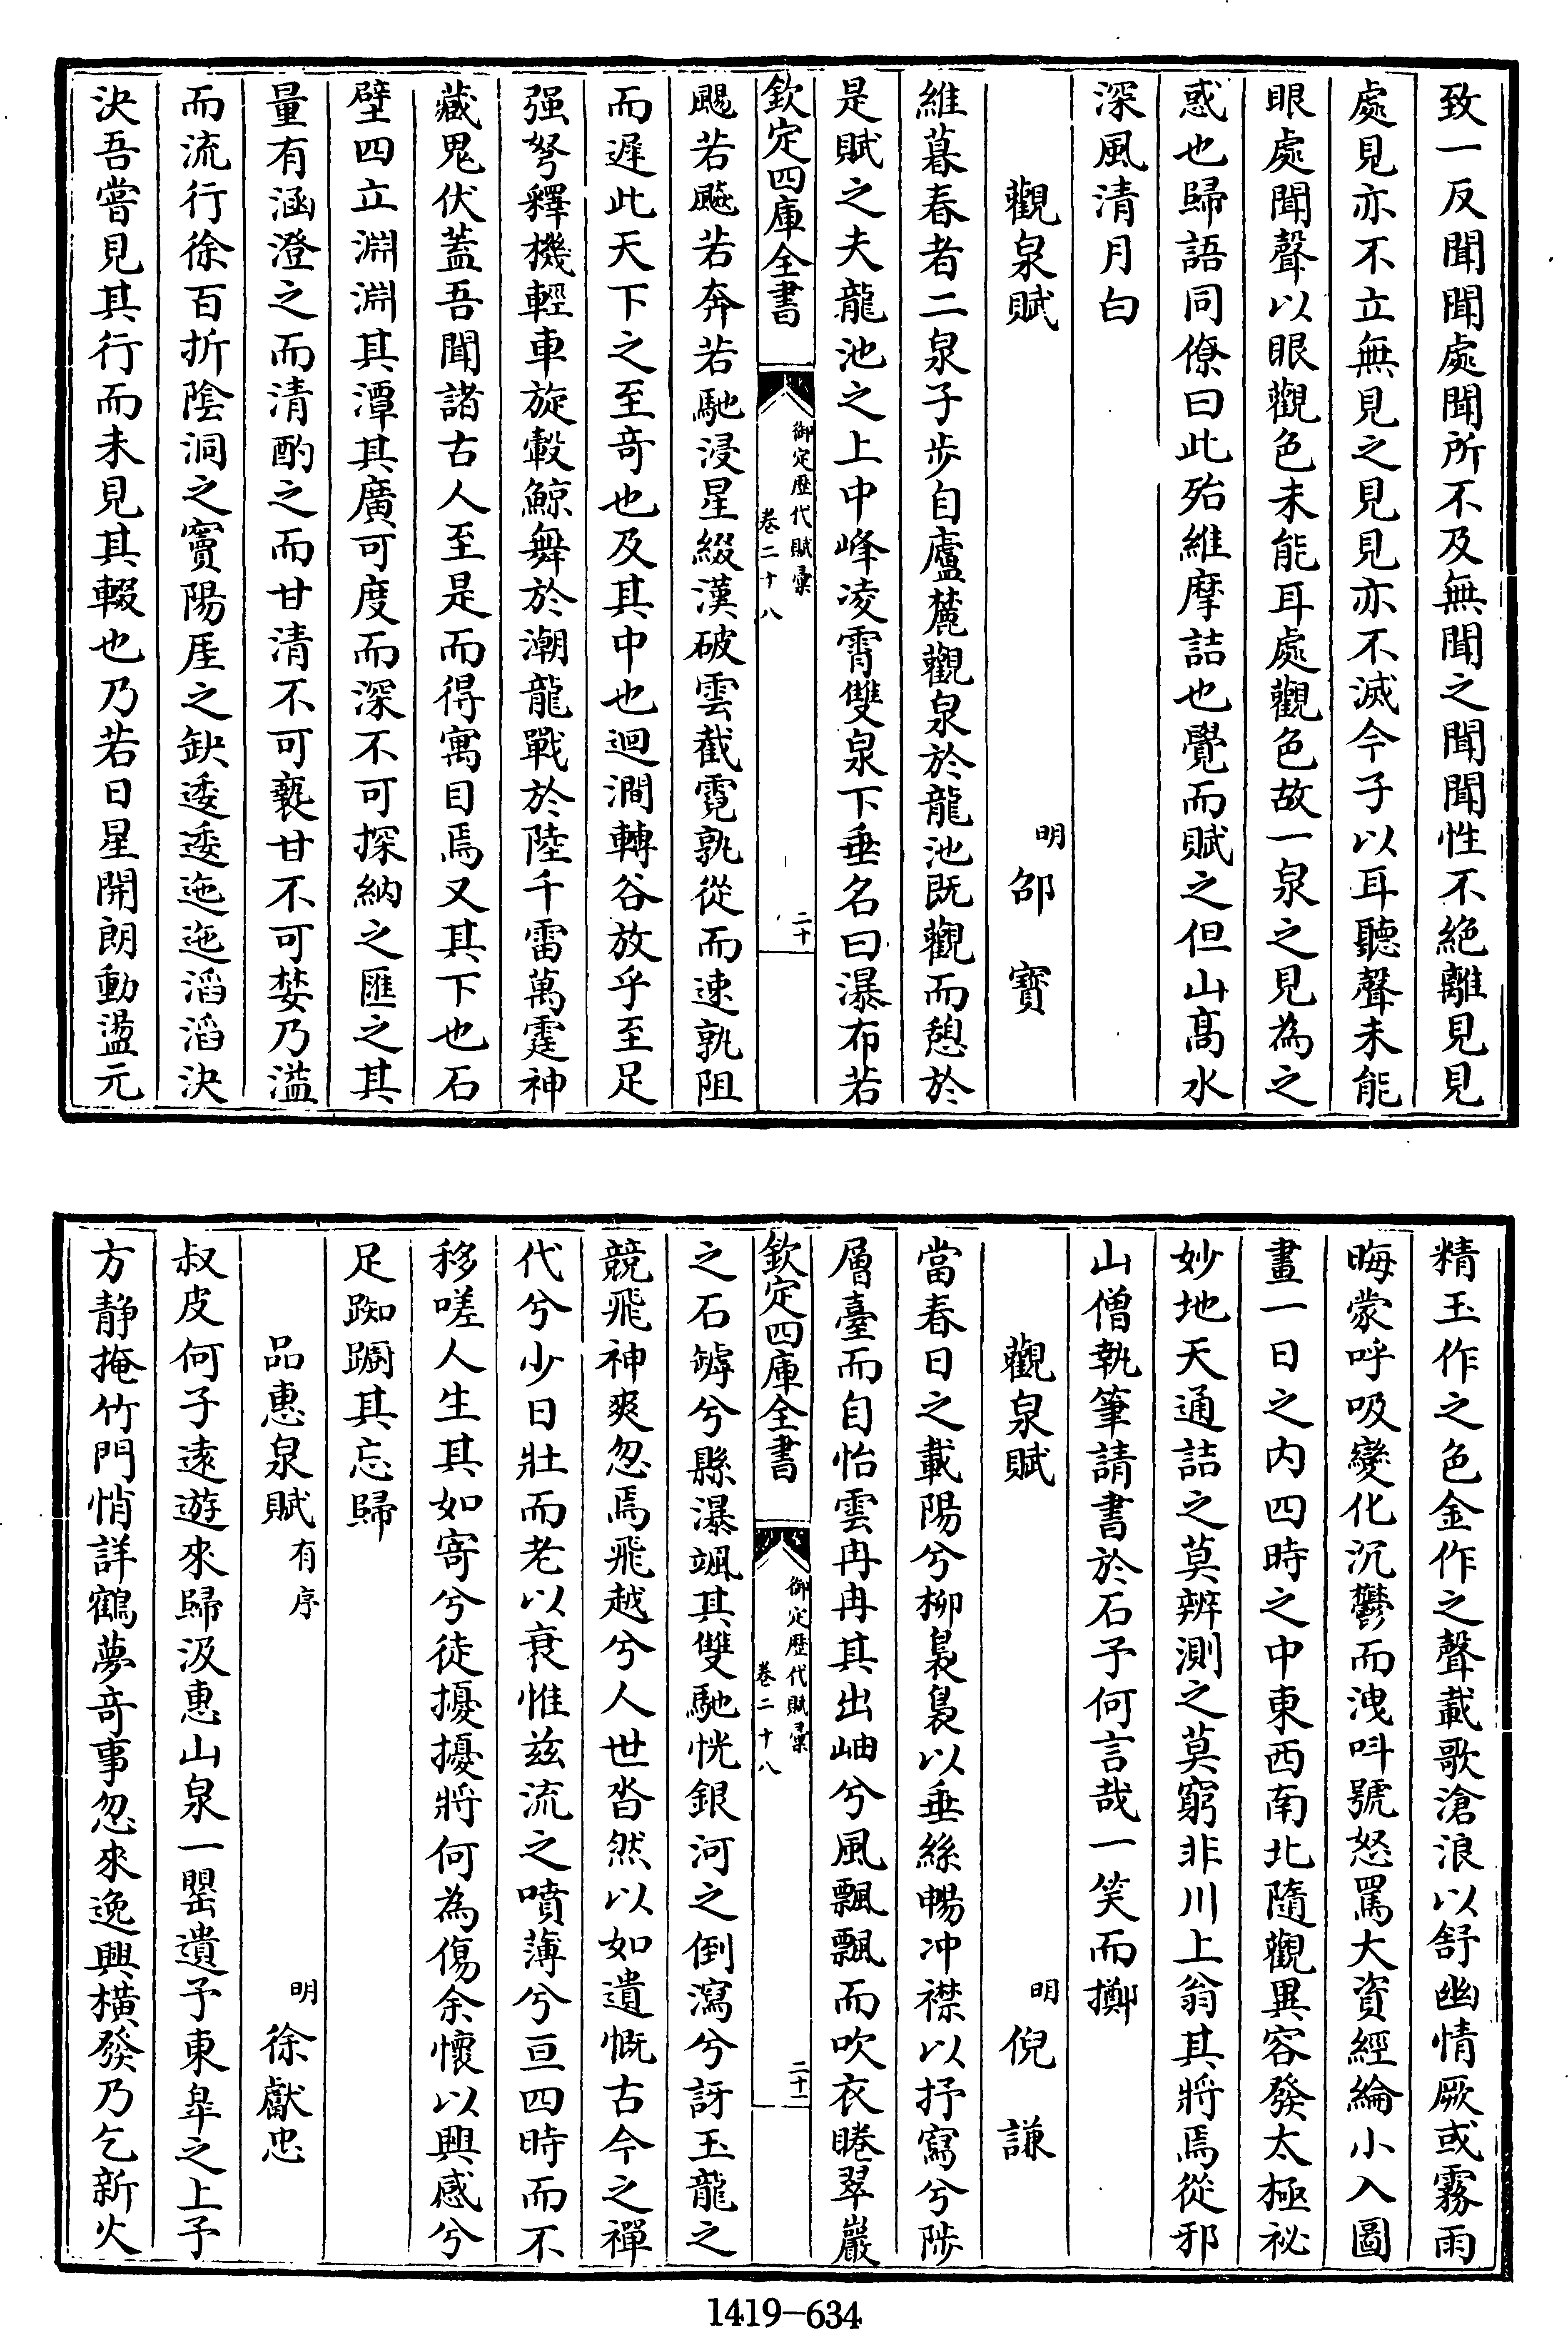 致一反聞聞處聞所不及無聞之聞聞性不絕離見見
處見亦不立無見之見見亦不滅今子以耳聽聲未能
眼處聞聲以眼觀色未能耳處觀色故一泉之見為之
惑也歸語同僚曰此殆維摩詰也覺而賦之但山髙水
深風清月白
觀泉賦 明 邵寳
維暮春者二泉子步自廬麓觀泉於龍池既觀而憩於
是賦之夫龍池之上中峰凌霄雙泉下垂名曰瀑布若
欽定四庫全書 御定歴代賦彙 卷二十八 二十
颺若飈若奔若馳浸星綴漢破雲截霓孰從而速孰阻
而遲此天下之至竒也及其中也迴澗轉谷放乎至足
强弩釋機輕車旋轂鯨舞於潮龍戰於陸千雷萬霆神
藏鬼伏蓋吾聞諸古人至是而得寓目焉又其下也石
壁四立淵淵其潭其廣可度而深不可探納之匯之其
量有涵澄之而清酌之而甘清不可褻甘不可婪乃溢
而流行徐百折陰洞之竇陽厓之缺逶逶迤迤滔滔決
決吾嘗見其行而未見其輟也乃若日星開朗動盪元
精玉作之色金作之聲載歌滄浪以舒幽情厥或霧雨
晦蒙呼吸變化沉鬱而洩呌號怒罵大資經綸小入圖
畫一日之内四時之中東西南北隨觀異容發太極祕
妙地天通詰之莫辨測之莫窮非川上翁其將焉從邪
山僧執筆請書於石予何言哉一笑而擲
觀泉賦 明 倪謙
當春日之載陽兮柳裊裊以垂絲暢冲襟以抒寫兮陟
層臺而自怡雲冉冉其出岫兮風飄飄而吹衣睠翠巖
欽定四庫全書 御定歴代賦彙 卷二十八 二十一
之石罅兮縣瀑颯其雙馳恍銀河之倒瀉兮訝玉龍之
競飛神爽忽焉飛越兮人世沓然以如遺慨古今之禪
代兮少日壯而老以衰惟兹流之噴薄兮亘四時而不
移嗟人生其如寄兮徒擾擾將何為傷余懷以興感兮
足踟躕其忘歸
品惠泉賦 有序 明 徐獻忠
叔皮何子逺遊來歸汲惠山泉一罌遺予東皐之上予
方静掩竹門悄詳鶴夢竒事忽來逸興橫發乃乞新火
1419-634